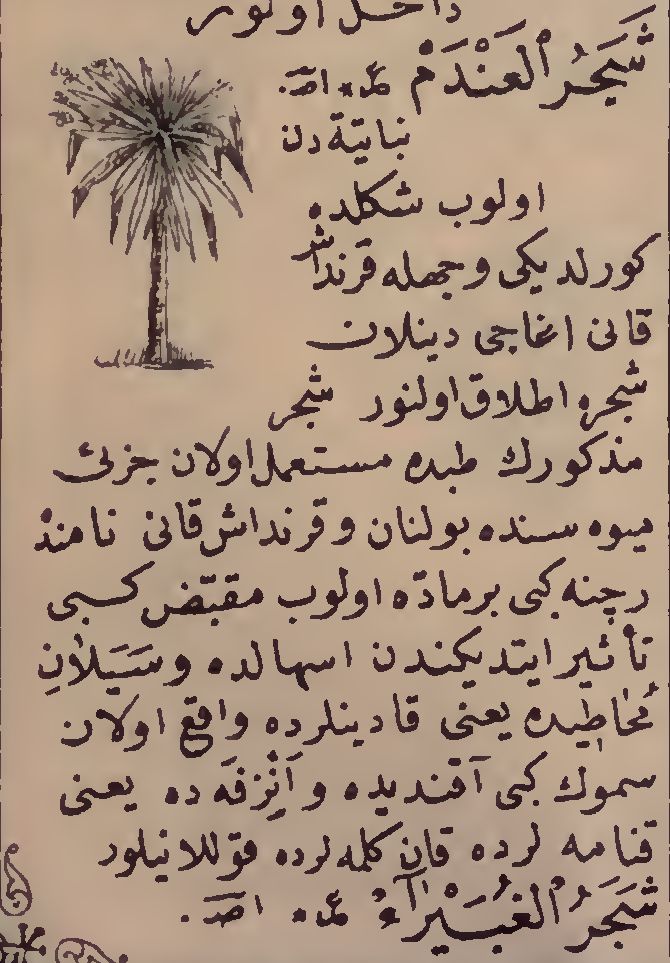 داخل اولور
شَجَرُ الْعَنْدَمْ عڊ اصـ.
نباتیّه دن
اولوب شکلده
کورلدیکی وجهله قرنداش
قانی اغاجی دینلان
شجره اطلاق اولنور شجر
مذکورك طبده مستعمل اولان جزئی
میوه سنده بولنان و قرنداش قانی نامنده
رچنه کبی بر مادّه اولوب مقبّض کسبی
تأثیر ایتدیکندن اسهالده و سَیَلانِ
مُخاطیده یعنی قادینلرده واقع اولان
سموك کبی آقندیده و اَنْزِفَه ده یعنی
قنامه لرده قان کلمه لرده قوللانیلور
شَجَرُ الْغُبَیْرَآءُ اصـ.